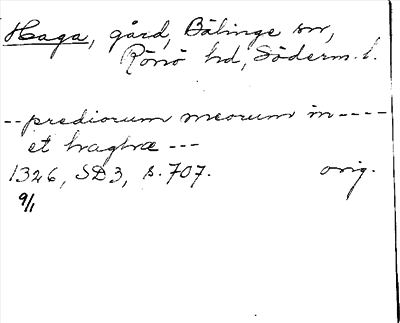 Haga, gård, Bälinge sn,
Rönö hd, Söderm. l.
-- prediorum meorum in ----
et hraghæ ---
1326, SD3, s. 707. orig.
9/1